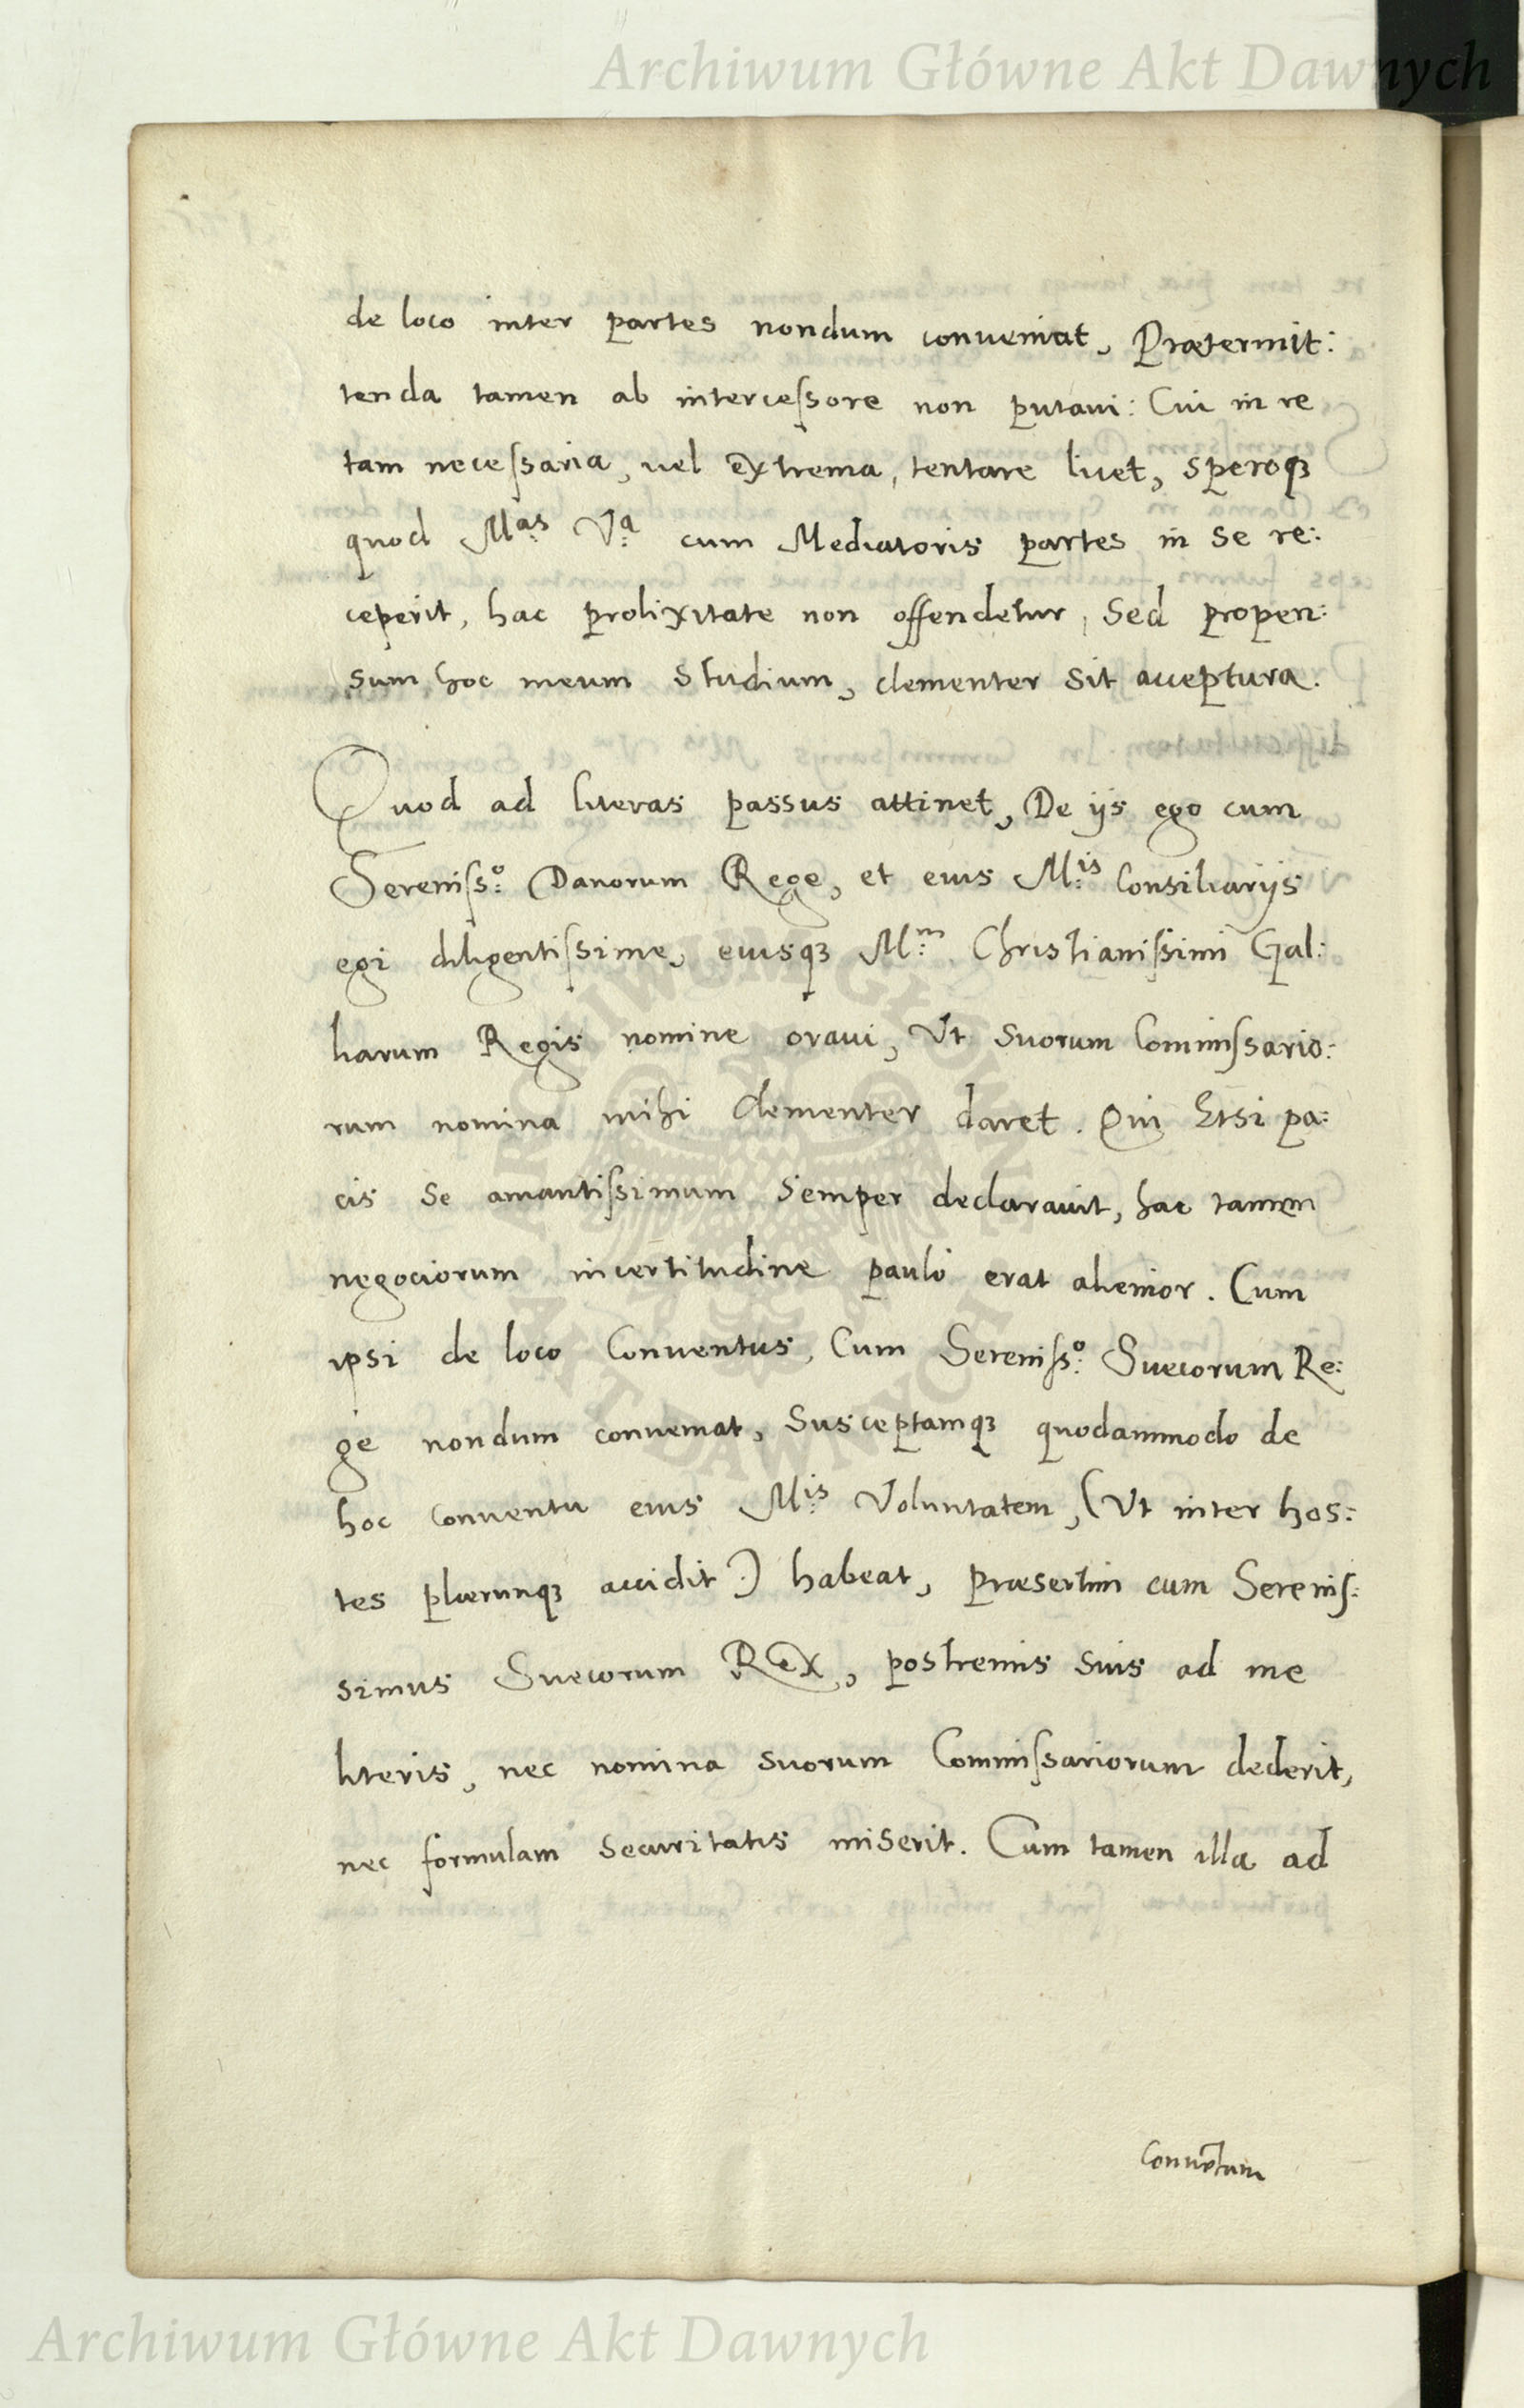 Archiwum Główne Akt Dawnych
de loco inter partes nondum conueniat, Prætermit:
tenda tamen ab interceſsore non putaui: Cui in re
tam neceſsaria, uel extrema, tentare licet, speroqꝫ
quod M.as V.a cum Mediatoris partes in se re:
ceperit, hac prolixitate non offendetur, Sed propen:
sum hoc meum studium, clementer sit acceptura.
Quod ad literas passus attinet, De ijs ego cum
Sereniſs.o Danorum Rege, et eius M.is Consiliarijs
egi diligentiſsime, eiusqꝫ M.m Christianiſsimi Gal:
liarum Regis nomine oraui, Vt suorum Commiſsario:
rum nomina mihi clementer daret. Qui Etsi pa:
cis se amantiſsimum semper declarauit, hac tamen
negociorum incertitudine paulo erat alienior. Cum
ipsi de loco Conuentus, Cum Sereniſs.o Suecorum Re:
ge nondum conueniat, Susceptamqꝫ quodammodo de
hoc conuentu eius M.is Voluntatem, (Vt inter hos:
tes plærunqꝫ accidit) habeat, præsertim cum Sereniſ:
simus Suecorum Rex, postremis suis ad me
literis, nec nomina suorum Commiſsariorum dederit,
nec formulam securitatis miserit. Cum tamen illa ad
Conuētum
ARCHIWUM GŁÓWNE AKT DAWNYCH
Archiwum Główne Akt Dawnych